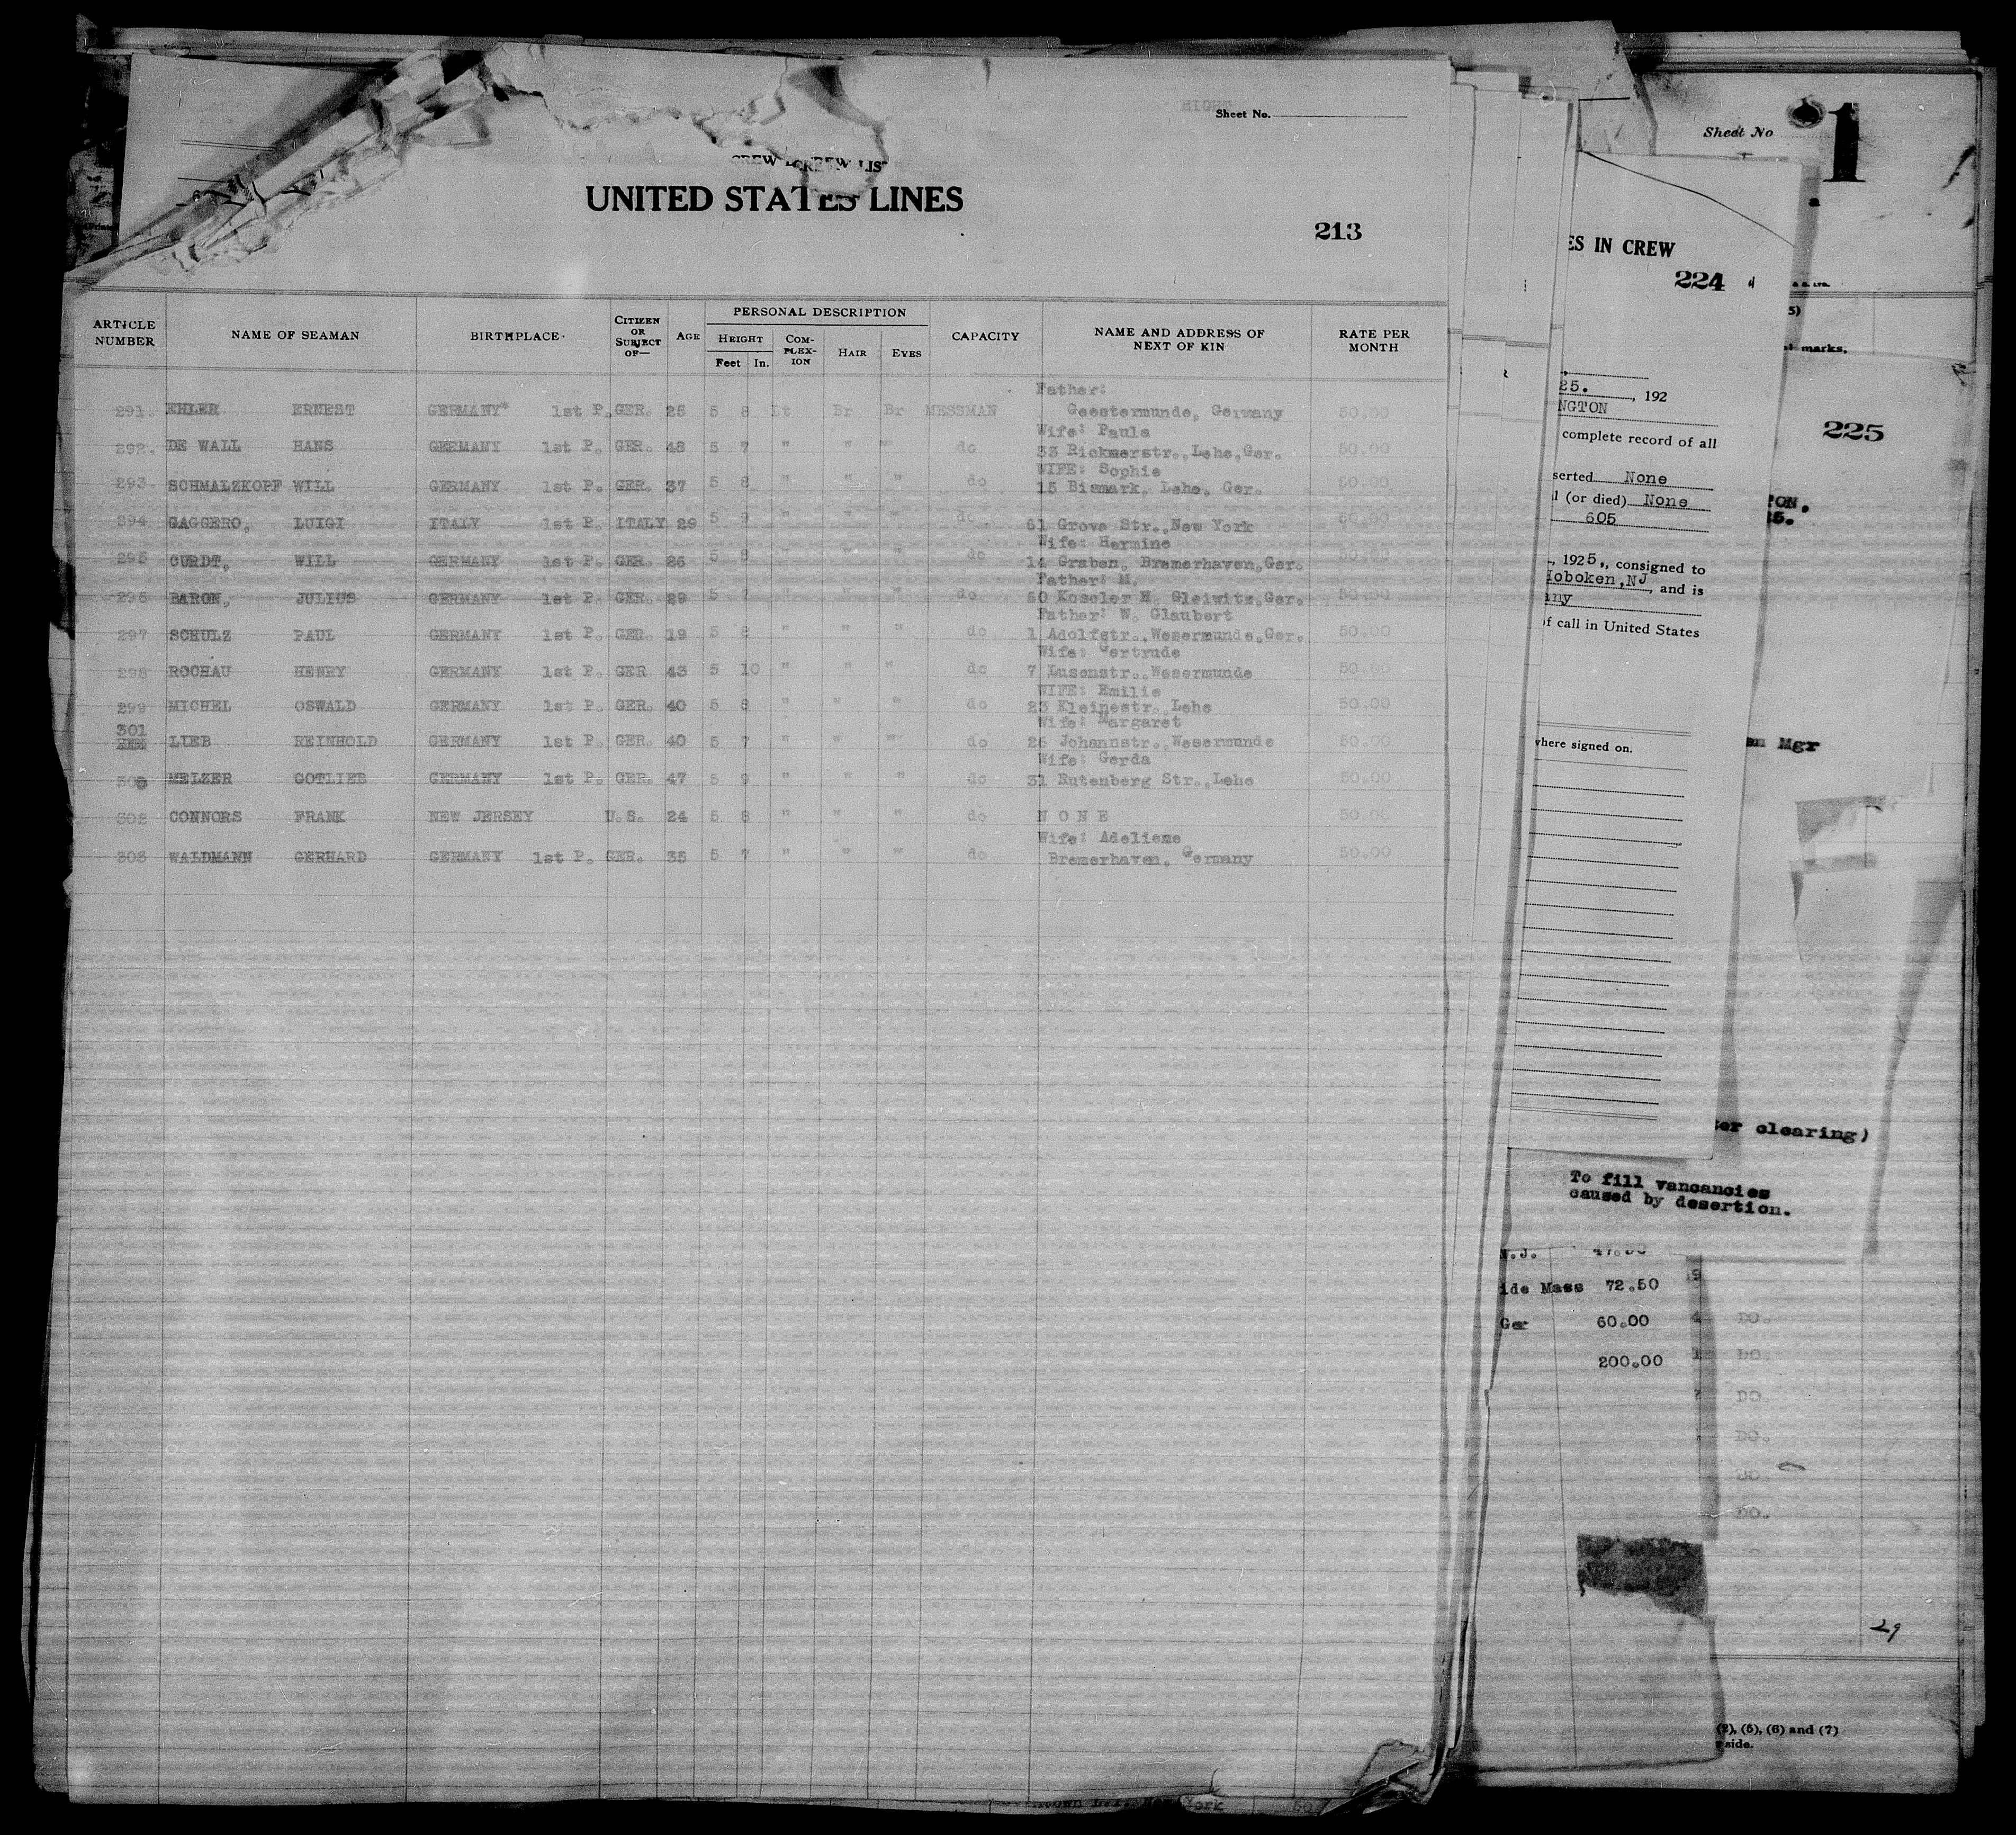 EIGHT
Sheet No.
CREW LIST
UNITED STATES LINES
213
ARTICLE NUMBER NAME OF SEAMAN BIRTHPLACE CITIZEN OR SUBJECT OF— AGE PERSONAL DESCRIPTION CAPACITY NAME AND ADDRESS OF NEXT OF KIN RATE PER MONTH
HEIGHT COM-PLEX-ION HAIR EYES
Feet In.
Father:
291. EHLER ERNEST GERMANY* 1st P. GER. 25 5 8 Lt Br Br MESSMAN Geestermunde, Germany 50.00
Wife: Paula
292. DE WALL HANS GERMANY 1st P. GER. 48 5 7 " " " do 33 Rickmerstr., Lehe, Ger. 50.00
WIFE: Sophie
293. SCHMALZKOPF WILL GERMANY 1st P. GER. 37 5 8 " " " do 15 Bismark, Lehe, Ger. 50.00
294 GAGGERO, LUIGI ITALY 1st P. ITALY 29 5 9 " " " do 61 Grove Str., New York 50.00
Wife: Hermine
295 CURDT, WILL GERMANY 1st P. GER. 26 5 8 " " " do 14 Graben, Bremerhaven, Ger. 50.00
Father: M.
296 BARON, JULIUS GERMANY 1st P. GER. 29 5 7 " " " do 60 Koseler H. Gleiwitz, Ger. 50.00
Father: W. Glaubert
297 SCHULZ PAUL GERMANY 1st P. GER. 19 5 8 " " " do 1 Adolfstr., Wesermunde, Ger. 50.00
Wife: Gertrude
298 ROCHAU HENRY GERMANY 1st P. GER 43 5 10 " " " do 7 Lusenstr., Wesermunde 50.00
WIFE: Emilie
299 MICHEL OSWALD GERMANY 1st P. GER. 40 5 8 " " " do 23 Kleinestr., Lehe 50.00
Wife: Margaret
301 LIEB REINHOLD GERMANY 1st P. GER. 40 5 7 " " " do 26 Johannstr., Wesermunde 50.00
Wife: Gerda
300 MELZER GOTLIEB GERMANY 1st P. GER. 47 5 9 " " " do 31 Rutenberg Str., Lehe 50.00
302 CONNORS FRANK NEW JERSEY U.S. 24 5 8 " " " do N O N E 50.00
Wife: Adeliene
303 WALDMANN GERHARD GERMANY 1st P. GER. 35 5 7 " " " do Bremerhaven, Germany 50.00
ES IN CREW
224
25. , 192
NGTON
complete record of all
serted None
l (or died) None
605
, 1925., consigned to
Hoboken, NJ, and is
any
of call in United States
where signed on.
Sheet No
1
marks.
225
TON.
25.
en Mgr
ter clearing)
To fill vancancies
caused by desertion.
N.J. 47.50
ide Mass 72.50
Ger 60.00
200.00
DO.
DO.
DO.
DO.
DO.
DO.
29
(2), (5), (6) and (7)
side.